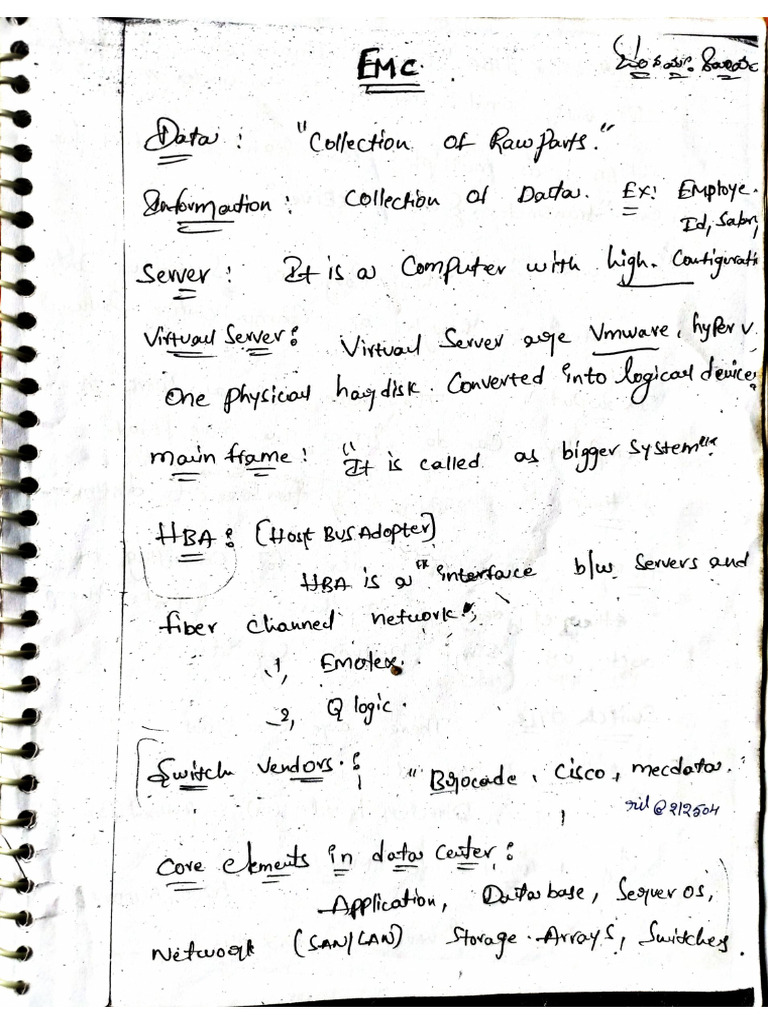 EMC.
Data: "Collection of Raw Parts."
Information: Collection of Data. Ex: Employe.
Id,
Server: It is a Computer with high. Configurati
Virtual Server: Virtual Server are Vmware, hyper v.
One physical hardisk. Converted into logical device
main frame: "It is called as bigger system".
HBA: (Host BUS Adopter)
HBA is a "interface b/w servers and
fiber channel network";
1, Emolex.
2, Q logic.
Switch Vendors: "Brocade, Cisco, mecdata."
Core elements in data center:
Application, Database, Server os,
Network (SAN/LAN) Storage. Arrays, Switches.